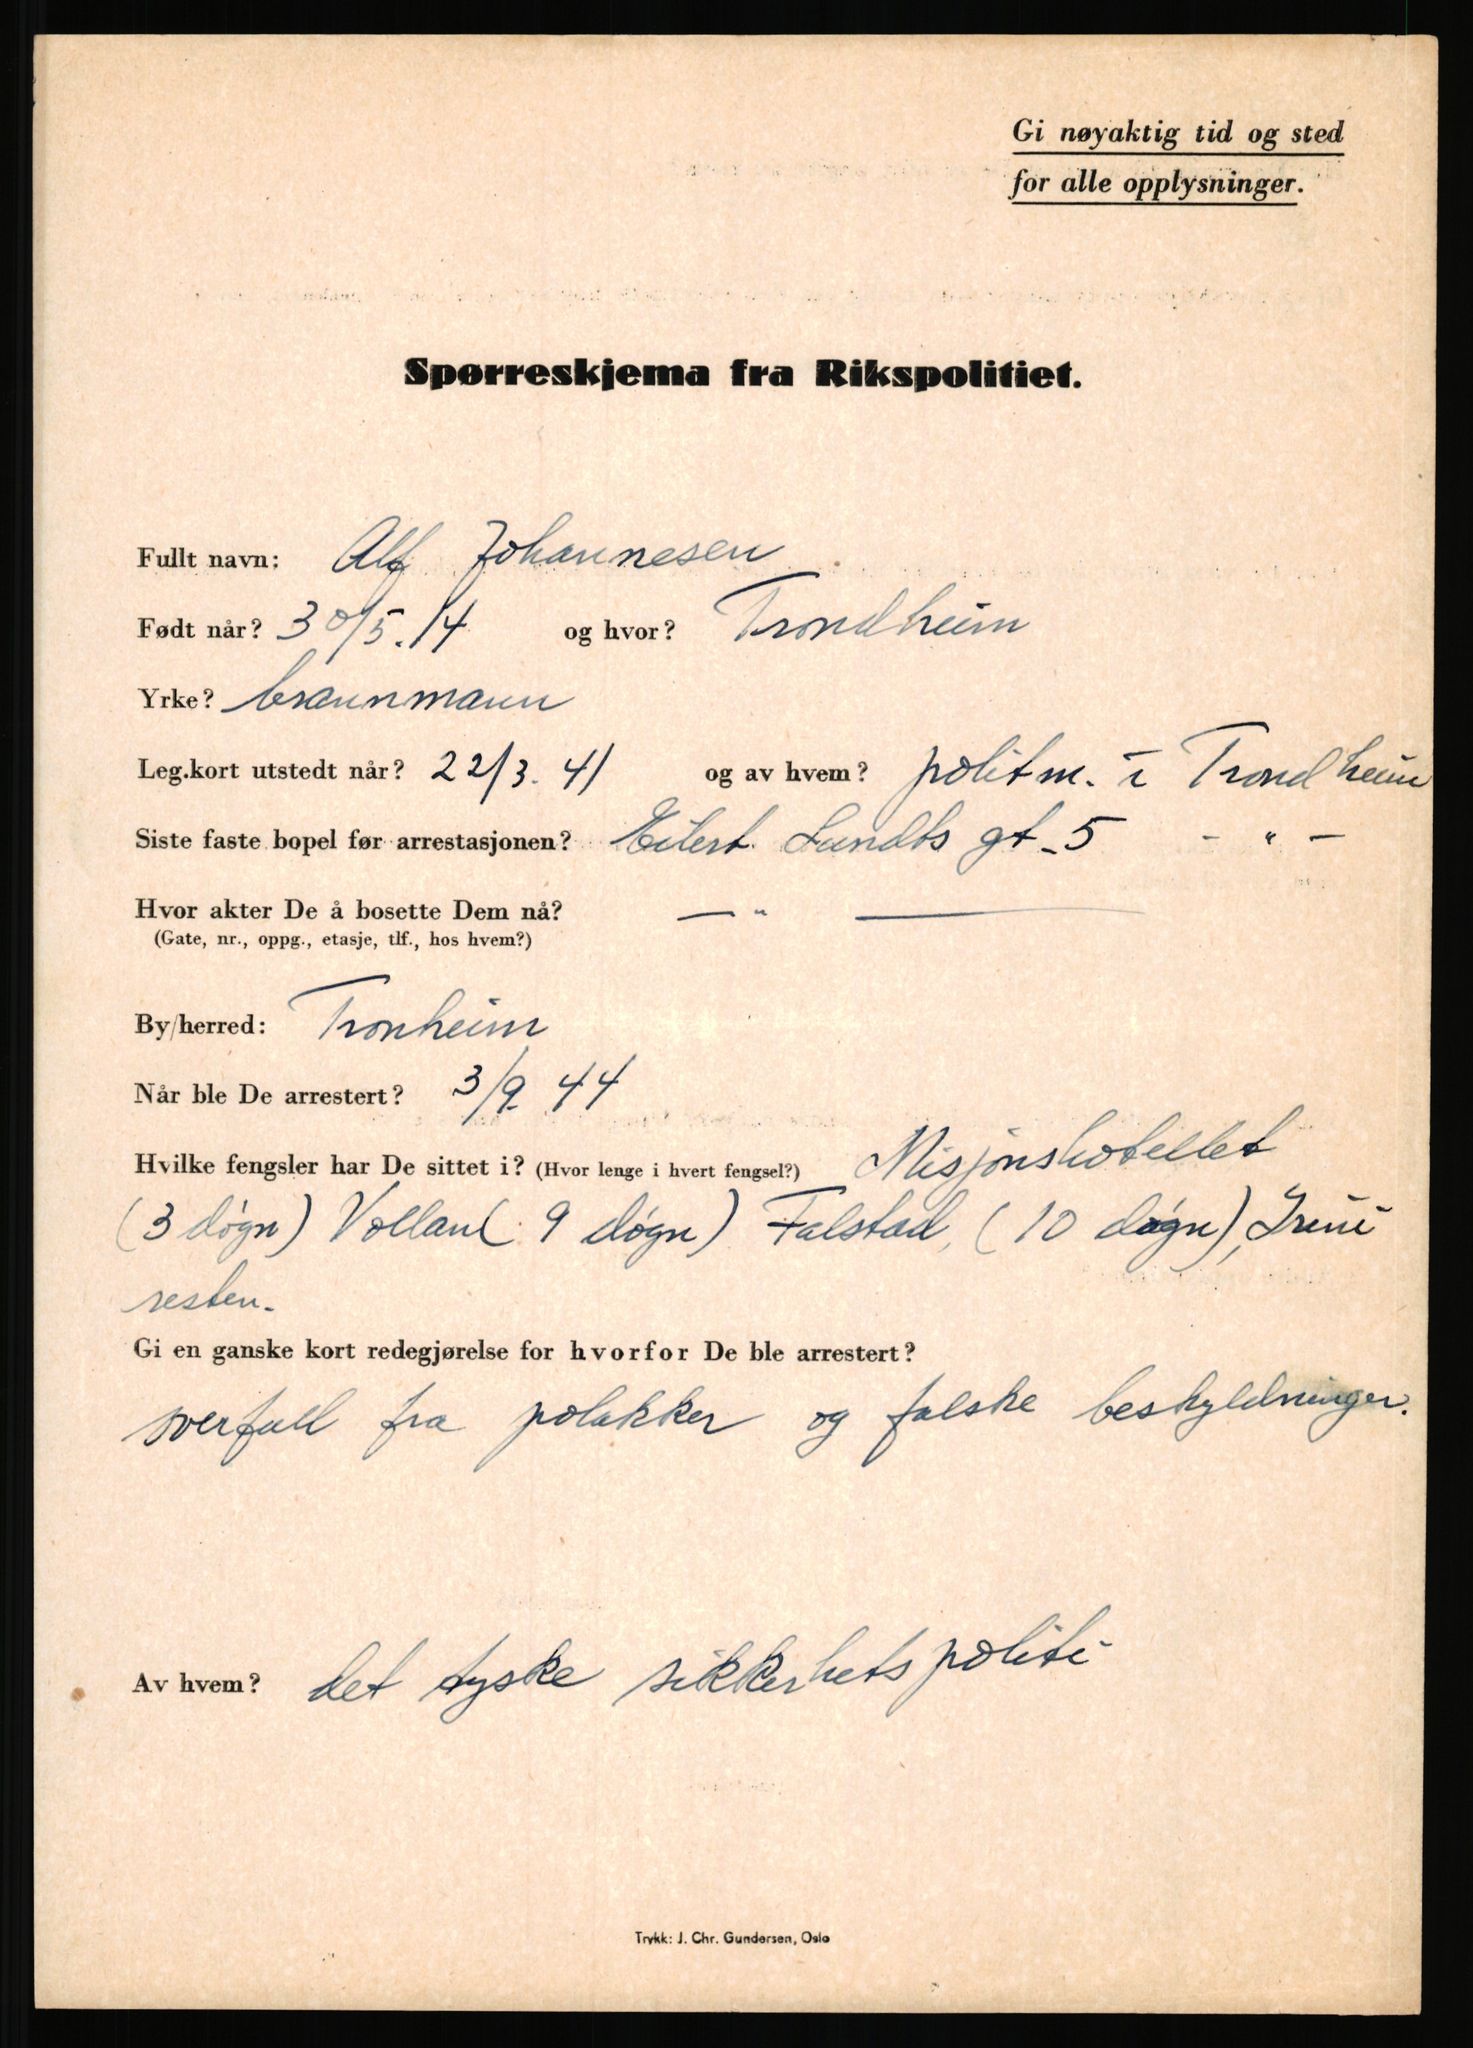 Gi nøyaktig tid og sted
for alle opplysninger.
Spørreskjema fra Rikspolitiet.
Fullt navn: Alf Johannesen
Født når? 30/5.14 og hvor? Trondheim
Yrke? brannmann
Leg.kort utstedt når? 22/3.41 og av hvem? politm. i Trondheim
Siste faste bopel før arrestasjonen? Eilert Sundts gt. 5 - " -
Hvor akter De å bosette Dem nå? — " —
(Gate, nr., oppg., etasje, tlf., hos hvem?)
By/herred: Tronheim
Når ble De arrestert? 3/9 44
Hvilke fengsler har De sittet i? (Hvor lenge i hvert fengsel?) Misjonshotellet
(3 døgn) Vollan (9 døgn) Falstad, (10 døgn), Grini
resten.
Gi en ganske kort redegjørelse for hvorfor De ble arrestert?
overfall fra polakker og falske beskyldninger.
Av hvem? det tyske sikkerhetspoliti
Trykk: J. Chr. Gundersen, Oslo